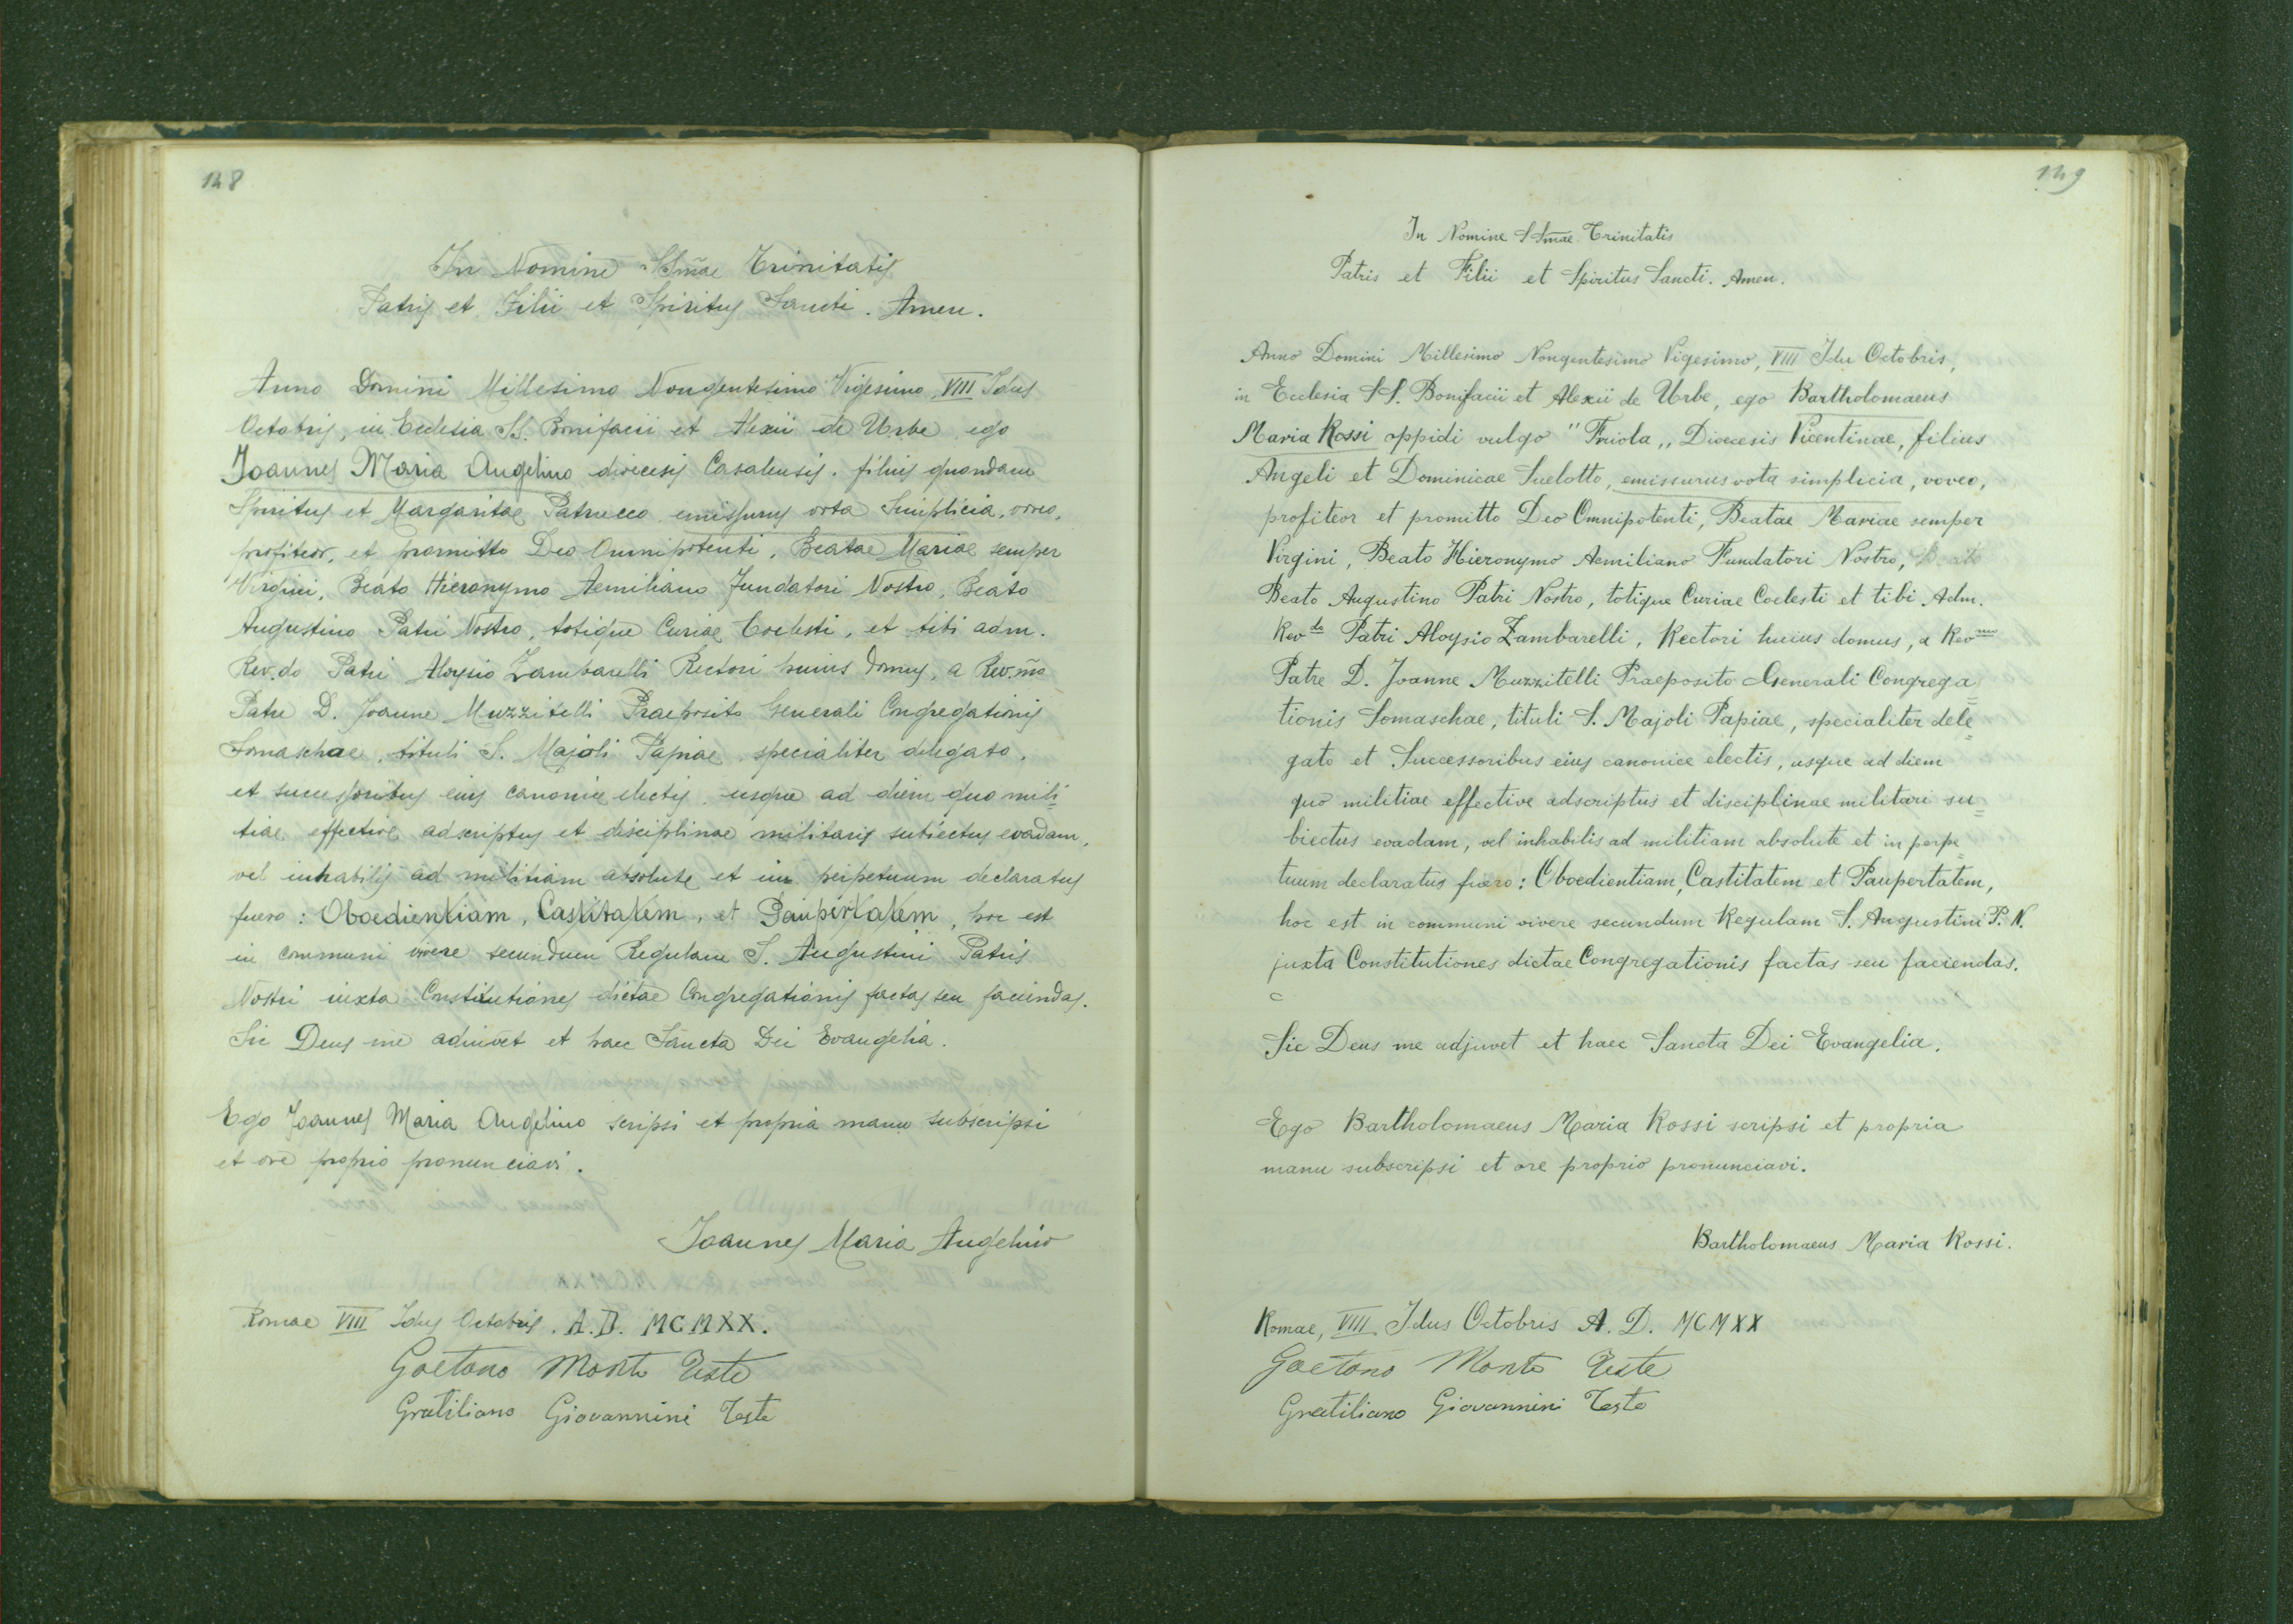 148
In Nomine SSm̃ae Trinitatis
Patris et Filii et Spiritus Sancti. Amen.
Anno Domini Millesimo Nongentesimo Vigesimo, VIII Idus
Octobris, in Ecclesia SS. Bonifacii et Alexii de Urbe, ego
Joannes Maria Angelino dioecesis Casalensis, filius quondam
Spiritus et Margaritae Patrucco, emissurus vota Simplicia, voveo,
profiteor, et promitto Deo Omnipotenti, Beatae Mariae semper
Virgini, Beato Hieronymo Aemiliano Fundatori Nostro, Beato
Augustino Patri Nostro, totique Curiae Coelesti, et tibi adm.
Rev.do Patri Aloysio Zambarelli Rectori huius domus, a Rev.mo
Patre D. Joanne Muzzitelli Praeposito Generali Congregationis
Somaschae, tituli S. Majoli Papiae, specialiter delegato,
et successoribus eius canonice electis, usque ad diem quo mili=
tiae effective adscriptus et disciplinae militaris subiectus evadam,
vel inhabilis ad militiam absolute et in perpetuum declaratus
fuero: Oboedientiam, Castitatem, et Paupertatem, hoc est
in communi vivere secundum Regulam S. Augustini Patris
Nostri iuxta Constitutiones dictae Congregationis factas seu faciendas.
Sic Deus me adiuvet et haec Sancta Dei Evangelia.
Ego Joannes Maria Angelino scripsi et propria manu subscripsi
et ore proprio pronunciavi.
Joannes Maria Angelino
Romae VIII Idus Octobris. A.D. MCMXX.
Gaetano Monti Teste
Gratiliano Giovannini Teste
149
In Nomine SSmae Trinitatis
Patris et Filii et Spiritus Sancti. Amen.
Anno Domini Millesimo Nongentesimo Vigesimo, VIII Idu Octobris,
in Ecclesia SS. Bonifacii et Alexii de Urbe, ego Bartholomaeus
Maria Rossi oppidi vulgo "Friola„ Dioecesis Vicentinae, filius
Angeli et Dominicae Suelotto, emissurus vota simplicia, voveo,
profiteor et promitto Deo Omnipotenti, Beatae Mariae semper
Virgini, Beato Hieronymo Aemiliano Fundatori Nostro, Beato
Beato Augustino Patri Nostro, totique Curiae Coelesti et tibi Adm.
Rev do Patri Aloysio Zambarelli, Rectori huius domus, a Rev mo
Patre D. Joanne Muzzitelli Praeposito Generali Congrega=
tionis Somaschae, tituli S. Majoli Papiae, specialiter dele=
gato et Successoribus eius canonice electis, usque ad diem
quo militiae effective adscriptus et disciplinae militari su=
biectus evadam, vel inhabilis ad militiam absolute et in perpe=
tuum declaratus fuero: Oboedientiam, Castitatem et Paupertatem,
hoc est in communi vivere secundum Regulam S. Augustini P. N.
juxta Constitutiones dictae Congregationis factas seu faciendas.
Sic Deus me adjuvet et haec Sancta Dei Evangelia.
Ego Bartholomaeus Maria Rossi scripsi et propria
manu subscripsi et ore proprio pronunciavi.
Bartholomaeus Maria Rossi.
Romae, VIII Idus Octobris A. D. MCMXX
Gaetano Monti Teste
Gratiliano Giovannini Teste